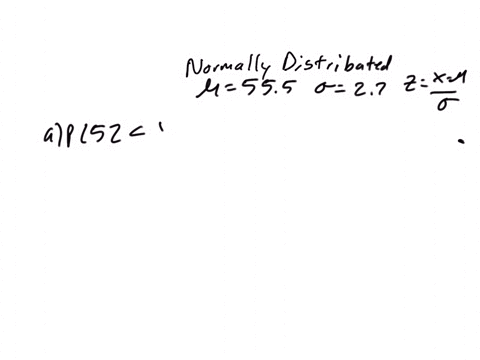 Normally Distributed
μ=55.5 σ=2.7 z=x-μ/σ
a)P(52<